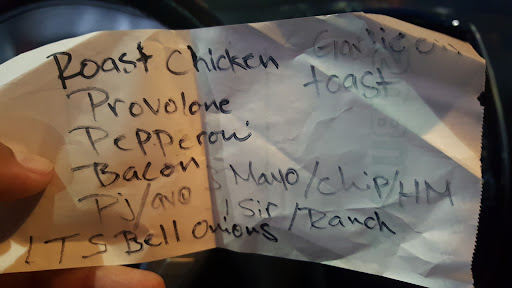 Roast Chicken
Garlic on
toast
Provolone
Pepperoni
Bacon
Mayo/chip/HM
Pj/avo /Sir/Ranch
LTS Bell Onions